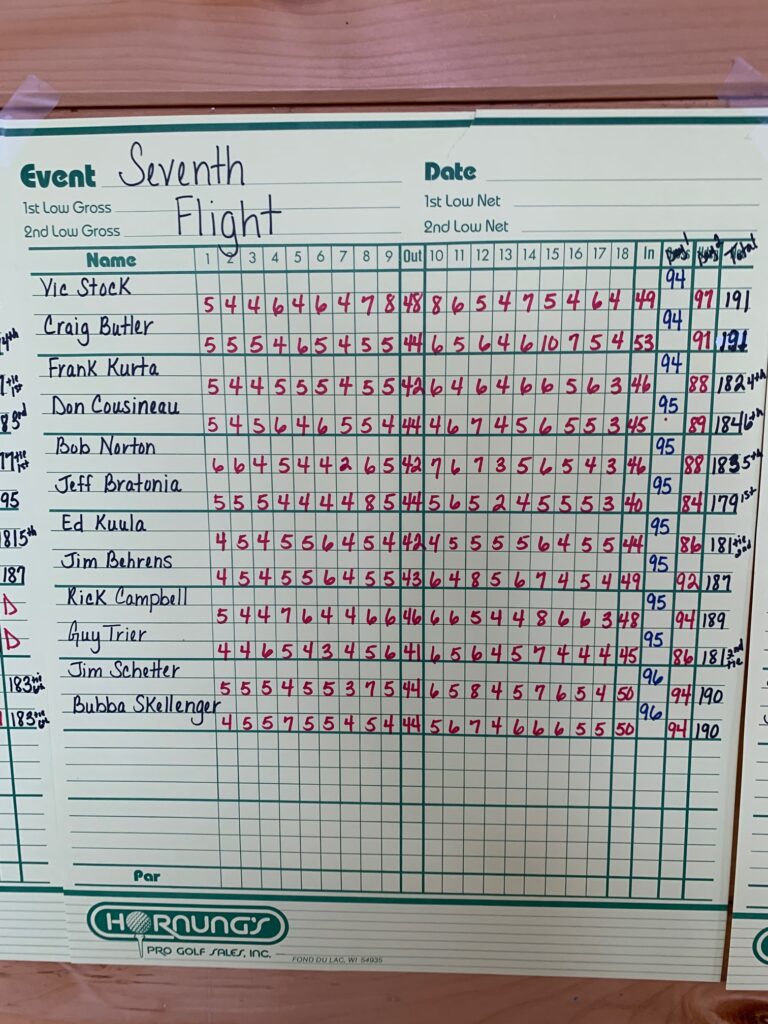 Event Seventh Date
1st Low Gross Flight 1st Low Net
2nd Low Gross 2nd Low Net
Name 1 2 3 4 5 6 7 8 9 Out 10 11 12 13 14 15 16 17 18 In Day 1 Day 2 Total
Vic Stock 94
5 4 4 6 4 6 4 7 8 48 8 6 5 4 7 5 4 6 4 49 97 191
Craig Butler 94
5 5 5 4 6 5 4 5 5 44 6 5 6 4 6 10 7 5 4 53 97 191
Frank Kurta 94
5 4 4 5 5 5 4 5 5 42 6 4 6 4 6 6 5 6 3 46 88 182 4th
Don Cousineau 95
5 4 5 6 4 6 5 5 4 44 4 6 7 4 5 6 5 5 3 45 89 184 6th
Bob Norton 95
6 6 4 5 4 4 2 6 5 42 7 6 7 3 5 6 5 4 3 46 88 183 5th
Jeff Bratonia 95
5 5 5 4 4 4 4 8 5 44 5 6 5 2 4 5 5 5 3 40 84 179 1st
Ed Kuula 95
4 5 4 5 5 6 4 5 4 42 4 5 5 5 5 6 4 5 5 44 86 181 tie 2nd
Jim Behrens 95
4 5 4 5 5 6 4 5 5 43 6 4 8 5 6 7 4 5 4 49 92 187
Rick Campbell 95
5 4 4 7 6 4 4 6 6 46 6 6 5 4 4 8 6 6 3 48 94 189
Guy Trier 95
4 4 6 5 4 3 4 5 6 41 6 5 6 4 5 7 4 4 4 45 86 181 2nd tie
Jim Schetter 96
5 5 5 4 5 5 3 7 5 44 6 5 8 4 5 7 6 5 4 50 94 190
Bubba Skellenger 96
4 5 5 7 5 5 4 5 4 44 5 6 7 4 6 6 6 5 5 50 94 190
Par
HORNUNG'S
PRO GOLF SALES, INC.
FOND DU LAC, WI 54935
95
181 5th
187
D
D
183 tie
183 tie